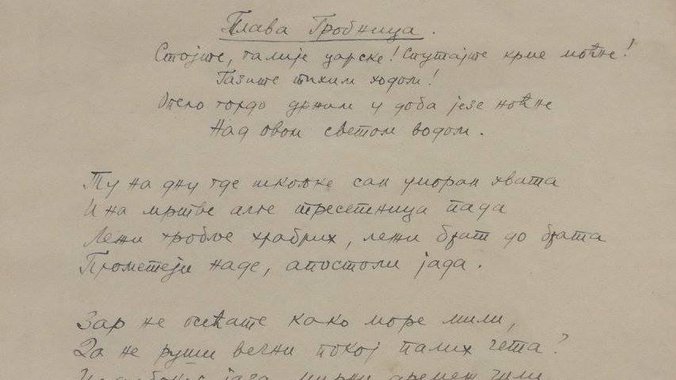 Плава Гробница.
Стојте, галије царске! Спутајте крме моћне!
Газите тихим ходом!
Опело гордо држим у доба језе ноћне
Над овом светом водом.
Ту на дну где шкољке сан уморан хвата
И на мртве алге тресетница пада
Лежи гробље храбрих, лежи брат до брата
Прометеји наде, апостоли јада.
Зар не осећате како море мили,
Да не руши вечни покој палих чета?